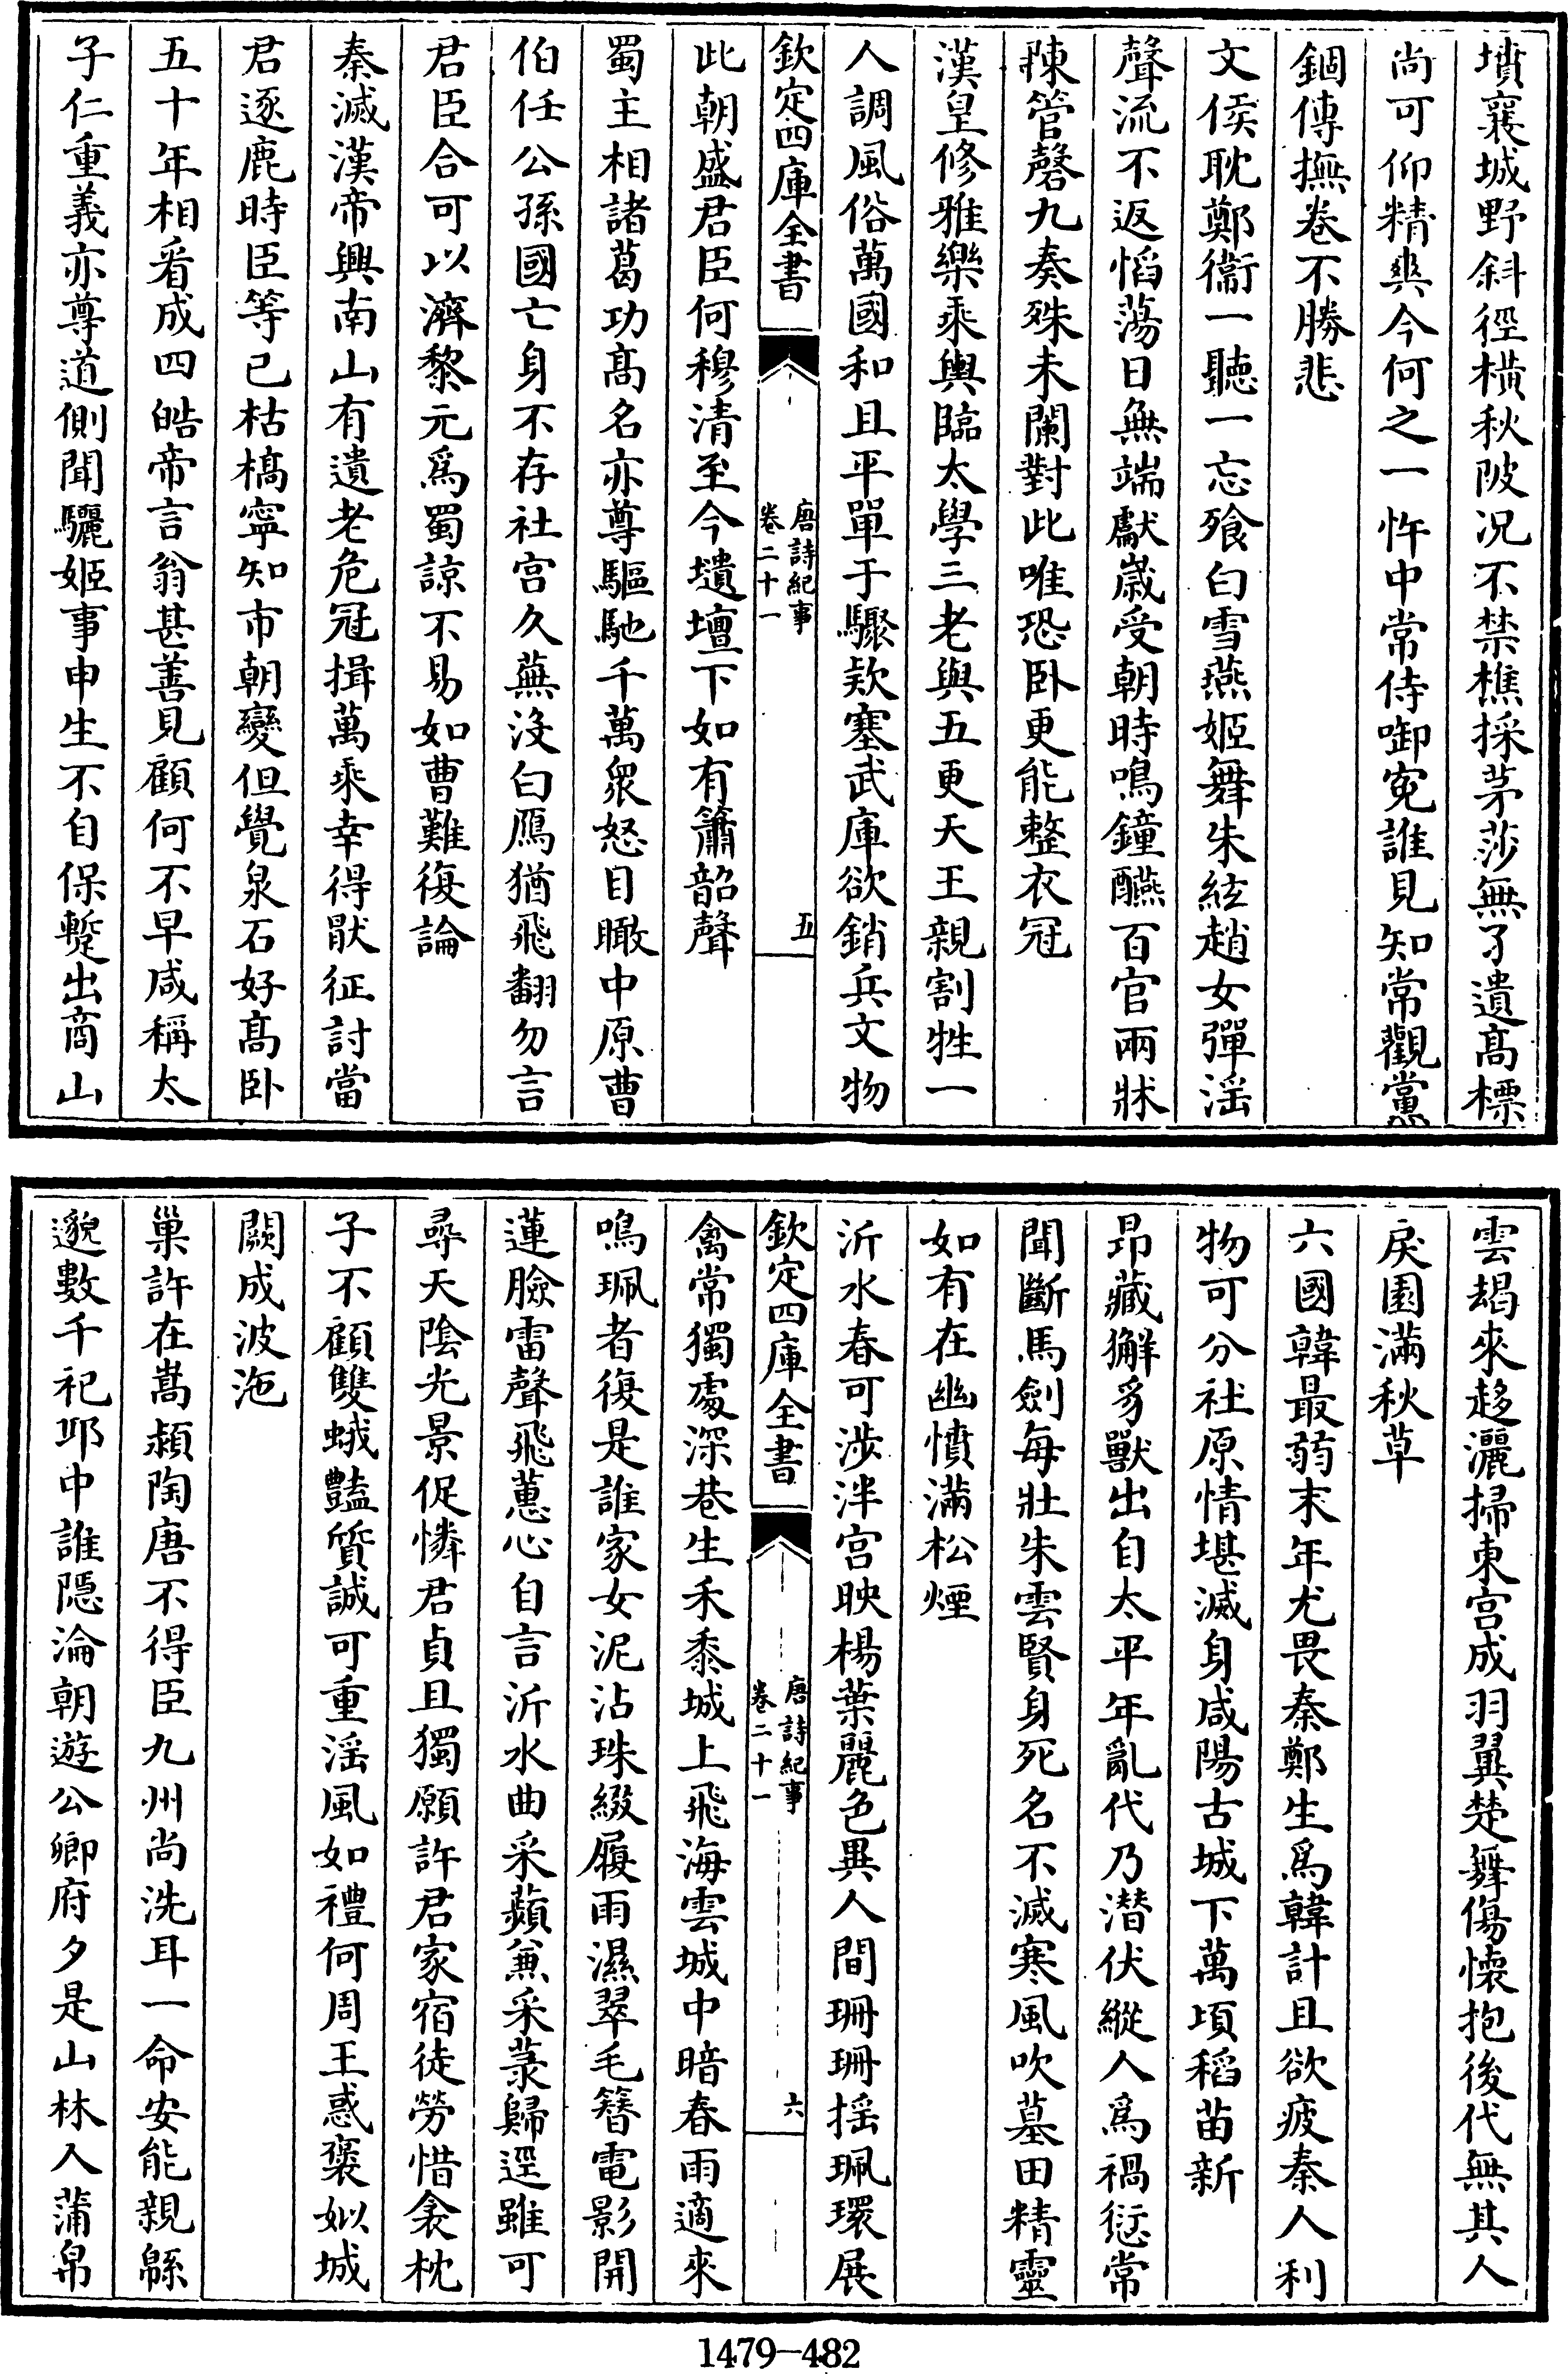 墳襄城野斜徑横秋陂况不禁樵採茅莎無孑遺髙標
尚可仰精爽今何之一忤中常侍啣寃誰見知常觀黨
錮傳撫卷不勝悲
文侯耽鄭衞一聽一忘飱白雪燕姬舞朱絃趙女彈滛
聲流不返慆蕩日無端獻嵗受朝時鳴鐘醼百官兩牀
陳管磬九奏殊未闌對此唯恐卧更能整衣冠
漢皇修雅樂乘輿臨太學三老與五更天王親割牲一
人調風俗萬國和且平單于驟欵塞武庫欲銷兵文物
欽定四庫全書
唐詩紀事
卷二十一
五
此朝盛君臣何穆清至今壝壇下如有簫韶聲
蜀主相諸葛功髙名亦尊驅馳千萬衆怒目瞰中原曹
伯任公孫國亡身不存社宫久蕪没白鴈猶飛翻勿言
君臣合可以濟黎元爲蜀諒不易如曹難復論
秦滅漢帝興南山有遺老危冠揖萬乘幸得厭征討當
君逐鹿時臣等已枯槁寜知市朝變但覺泉石好髙卧
五十年相看成四皓帝言翁甚善見顧何不早咸稱太
子仁重義亦尊道側聞驪姬事申生不自保暫出商山
雲朅來趍灑掃東宫成羽翼楚舞傷懷抱後代無其人
戾園滿秋草
六國韓最弱末年尤畏秦鄭生爲韓計且欲疲秦人利
物可分社原情堪滅身咸陽古城下萬頃稻苗新
昻藏獬豸獸出自太平年亂代乃潜伏縱人爲禍愆常
聞斷馬劍每壯朱雲賢身死名不滅寒風吹墓田精靈
如有在幽憤滿松煙
沂水春可涉泮宫映楊葉麗色異人間珊珊揺珮環展
欽定四庫全書
唐詩紀事
卷二十一
六
禽常獨處深巷生禾黍城上飛海雲城中暗春雨適來
鳴珮者復是誰家女泥沾珠綴履雨濕翠毛簪電影開
蓮臉雷聲飛蕙心自言沂水曲采蘋兼采菉歸逕雖可
尋天陰光景促憐君貞且獨願許君家宿徒勞惜衾枕
子不顧雙蛾豔質誠可重滛風如禮何周王惑褒姒城
闕成波沲
巢許在嵩潁陶唐不得臣九州尚洗耳一命安能親緜
邈數千祀邛中誰隱淪朝遊公卿府夕是山林人蒲帛
1479-482